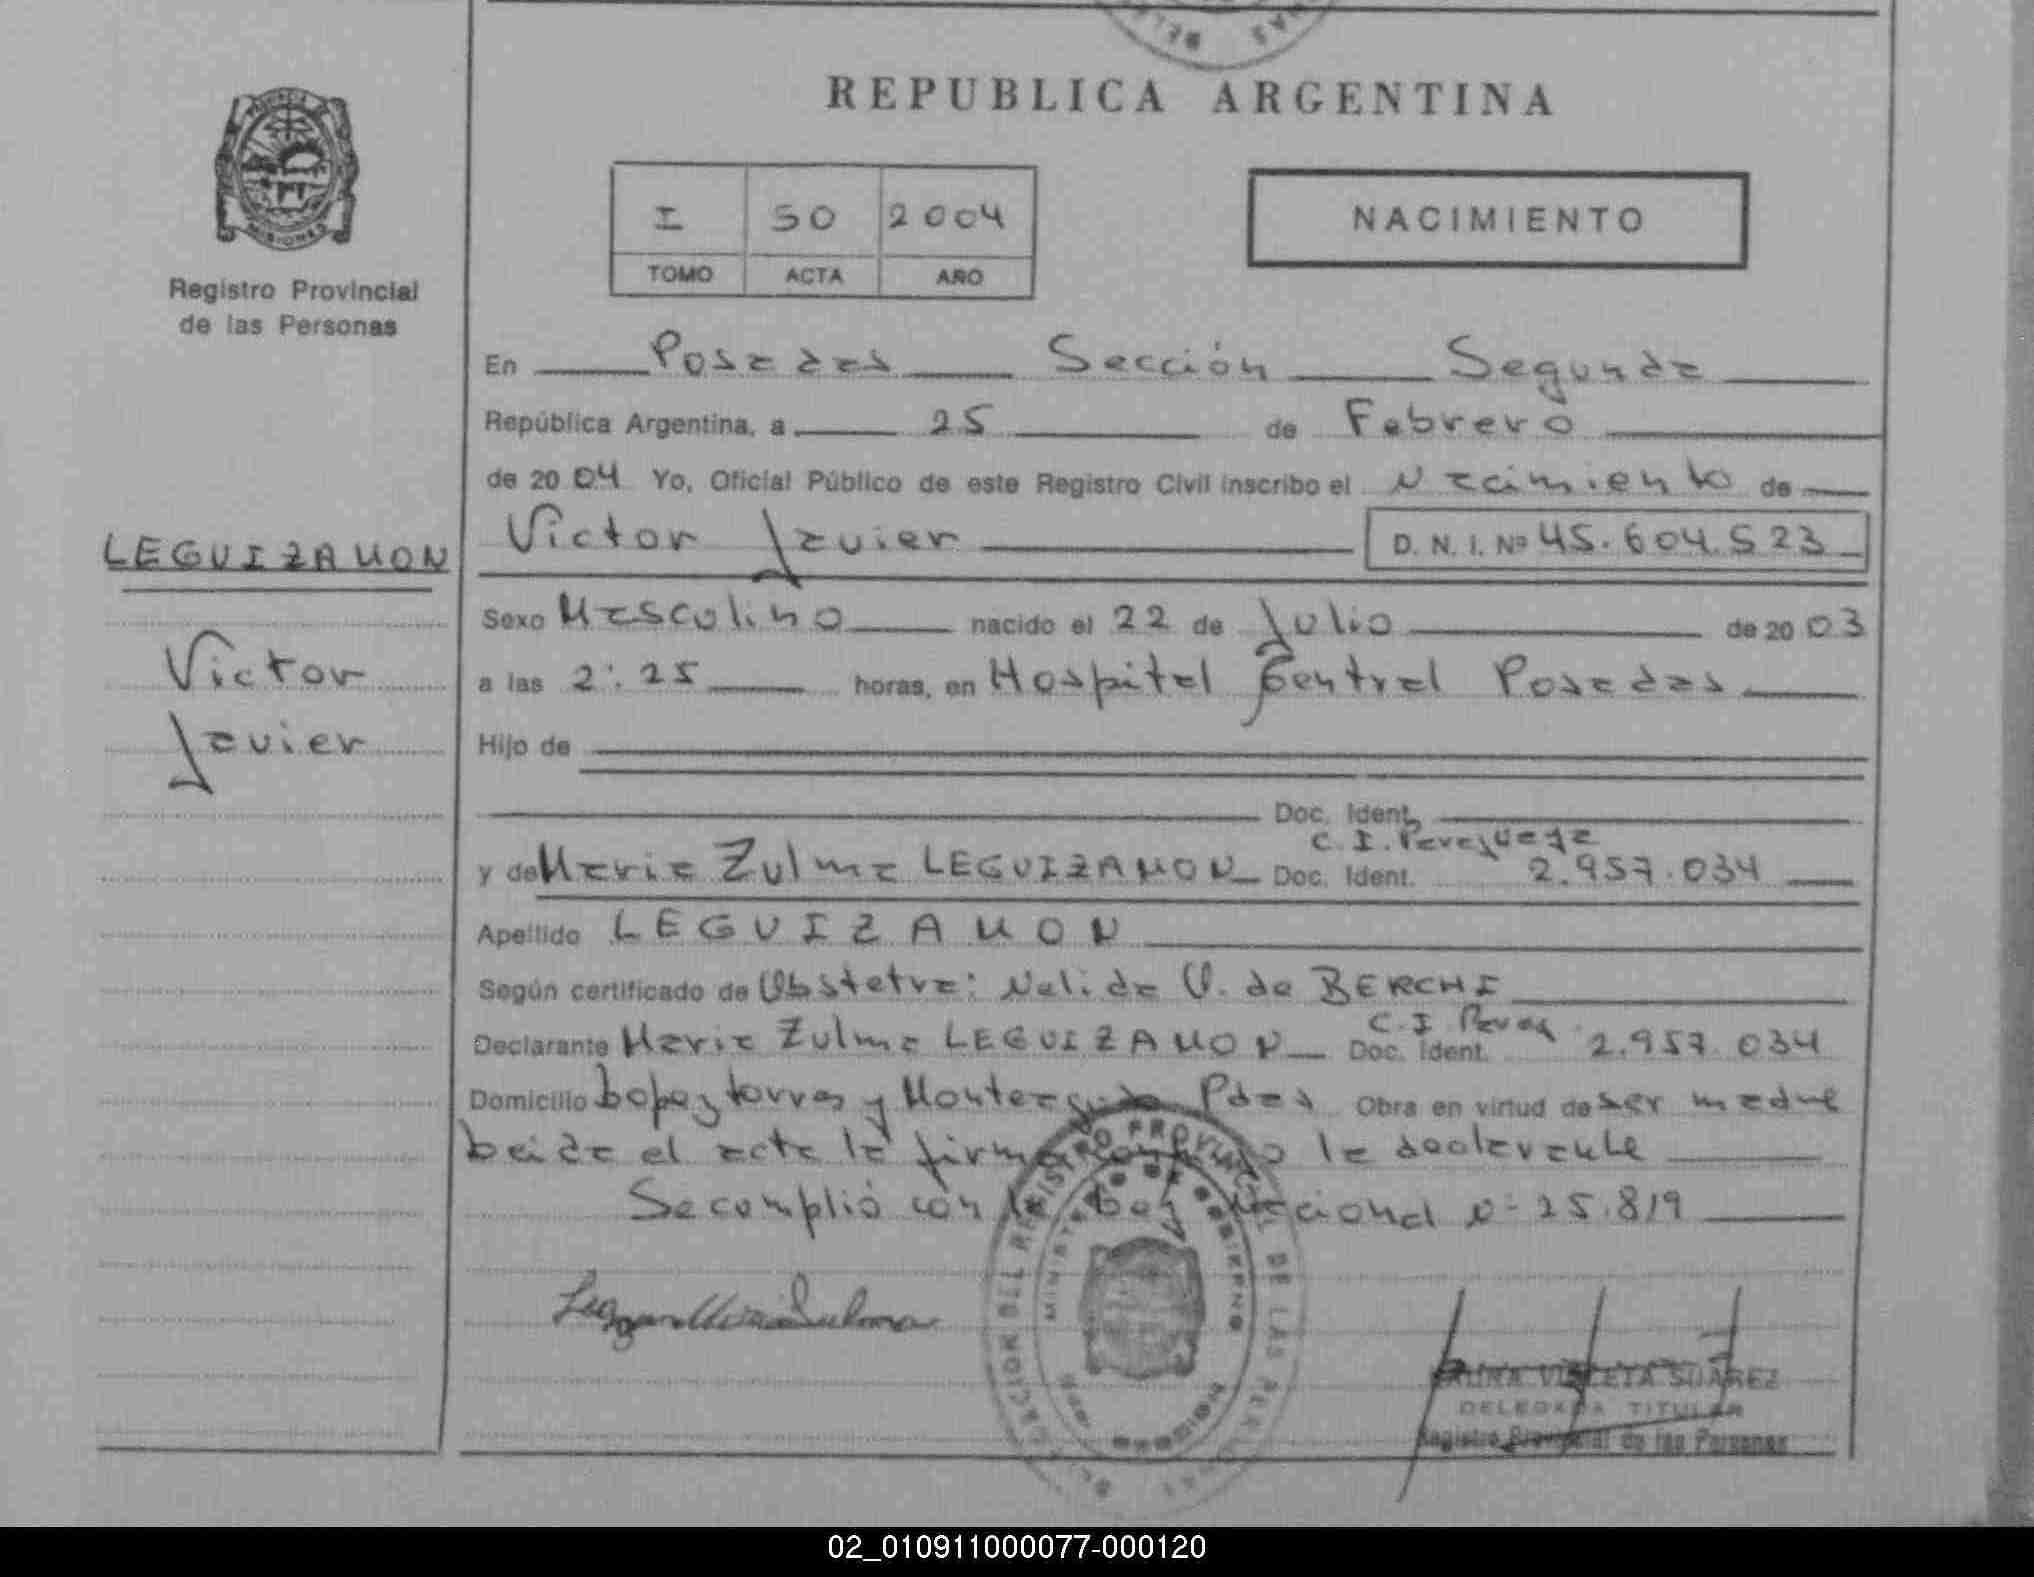 REPUBLICA ARGENTINA
MISIONES
Registro Provincial
de las Personas
I 50 2004
TOMO ACTA AÑO
NACIMIENTO
En Posadas Sección Segunda
República Argentina, a 25 de Febrero
de 2004 Yo, Oficial Público de este Registro Civil inscribo el Nacimiento de
LEGUIZAMON
Victor Javier D. N. I. Nº 45.604.523
Sexo Masculino nacido el 22 de Julio de 2003
Victor
Javier
a las 2:25 horas, en Hospital Central Posadas
Hijo de
Doc. Ident.
C. I. Paraguaya
y de Maria Zulma LEGUIZAMON Doc. Ident. 2.957.034
Apellido LEGUIZAMON
Según certificado de Obstetra: Nelida V. de BERCHI
C. I Parag
Declarante Maria Zulma LEGUIZAMON Doc. Ident. 2.957.034
Domicilio Lopez torres y Monteagudo Pdas Obra en virtud de ser madre
Leida el acta la firma la declarante
Se cumplió con la Ley Nacional n° 25.819
REGISTRO PROVINCIAL DE LAS PERSONAS
MINISTERIO DE GOBIERNO
VIOLETA SUAREZ
DELEGADA TITULAR
Registro Provincial de las Personas
02_010911000077-000120